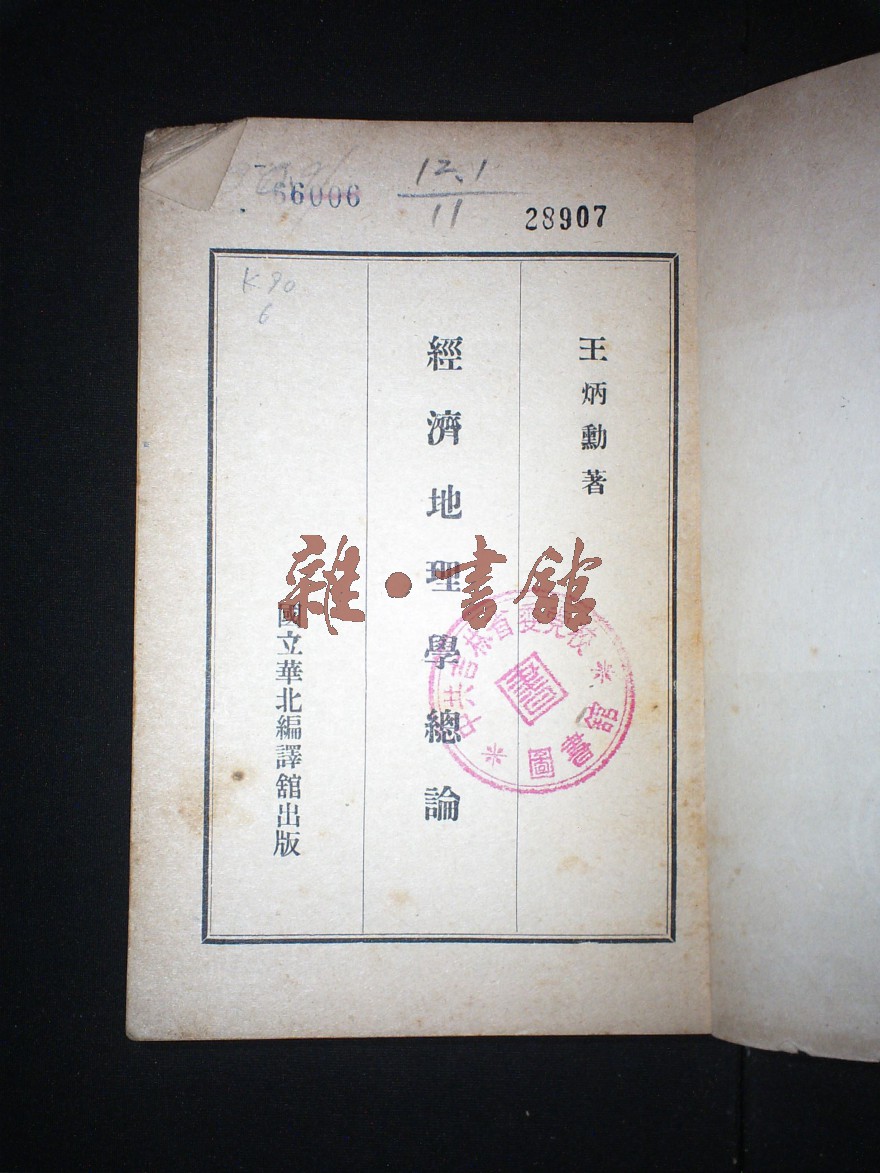 66006
12.1
11
28907
K90
6
王炳勳著
經濟地理學總論
國立華北編譯館出版
中共吉林省委党校
圖書舘
雜·書舘